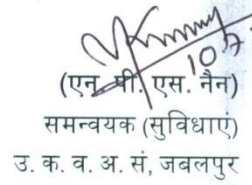 10/7
(एन. पी. एस. नैन)
समन्वयक (सुविधाएं)
उ. क. व. अ. सं, जबलपुर